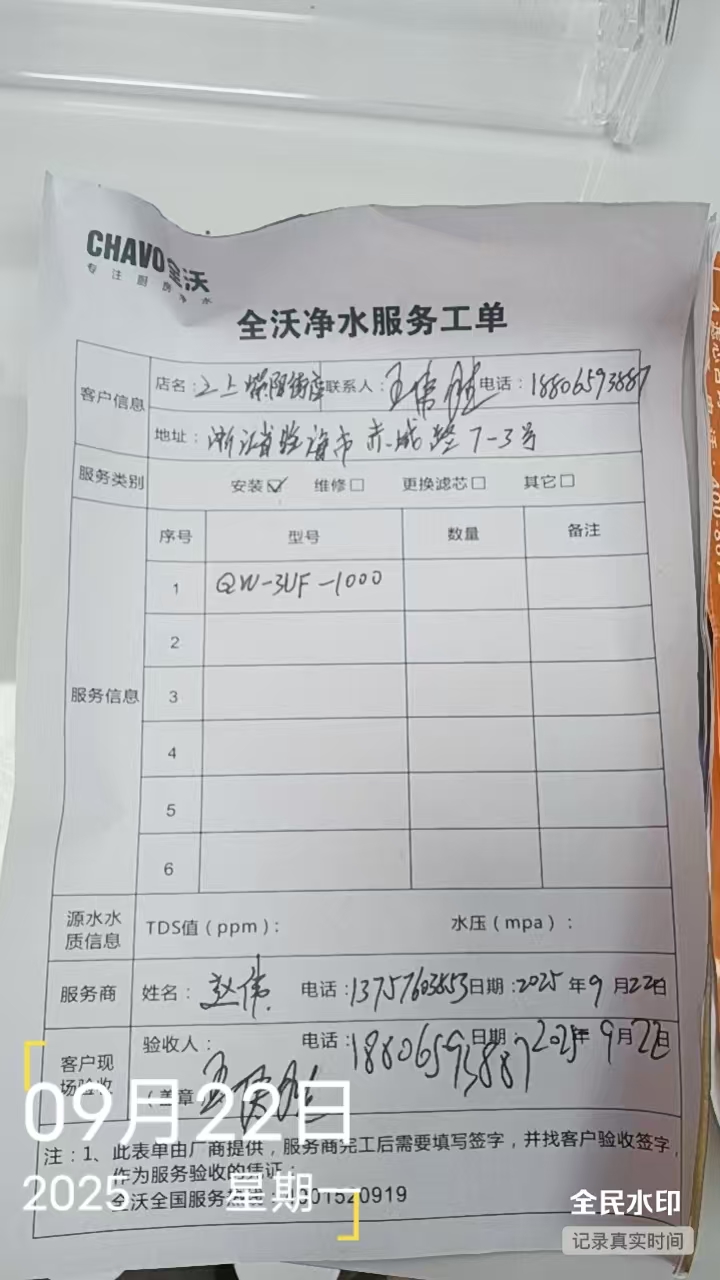 CHAVO全沃
专注厨房净水
全沃净水服务工单
客户信息
店名：之上 街店 联系人：王伟 电话：18806593887
地址：浙江省临海市赤城路7-3号
服务类别 安装☑ 维修□ 更换滤芯□ 其它□
服务信息
序号 型号 数量 备注
1 QW-3UF-1000
2
3
4
5
6
源水水质信息 TDS值（ppm）： 水压（mpa）：
服务商 姓名：赵伟 电话：13757603853 日期：2025年9月22日
客户现场验收
验收人： 电话：18806593887 日期：2025年9月22日
（盖章
注：1、此表单由厂商提供，服务商完工后需要填写签字，并找客户验收签字，
作为服务验收的凭证；
全沃全国服务热线：4001520919
09月22日
2025 星期一
全民水印
记录真实时间